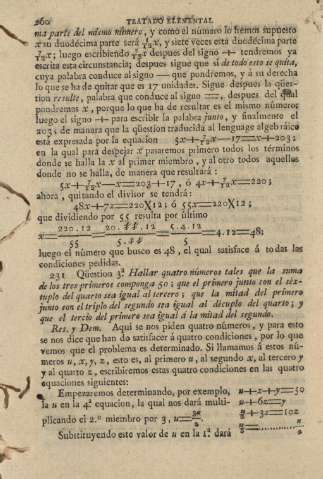 260 TRATADO ELEMENTAL
ma parte del mismo número, y como el numero lo hemos supuesto
x su duodécima parte será 1/12 x, y siete veces esta duodécima parte
7/12 x; luego escribiendo 7/12 x despues del signo + tendremos ya
escrita esta circunstancia; despues sigue que si de todo esto se quita,
cuya palabra conduce al signo — que pondremos, y á su derecha
lo que se ha de quitar que es 17 unidades. Sigue despues la qües-
tion resulte, palabra que conduce al signo =, despues del qual
pondremos x, porque lo que ha de resultar es el mismo número;
luego el signo + para escribir la palabra junto, y finalmente el
203; de manera que la qüestion traducida al lenguage algebraico
está expresada por la equacion 5x+7/12 x—17=x+203;
en la qual para despejar x pasaremos primero todos los términos
donde se halla la x al primer miembro, y al otro todos aquellos
donde no se halla, de manera que resultará :
5x+7/12 x—x=203+17, ó 4x+7/12 x=220;
ahora, quitando el divisor se tendrá:
48x+7x=220X12; ó 55x=220X12;
que dividiendo por 55 resulta por último
x= 220.12/55 = 20.44.12/5.44 = 5.4.12/5 =4.12=48;
luego el número que busco es 48, el qual satisface á todas las
condiciones pedidas.
231 Qüestion 3.ª Hallar quatro números tales que la suma
de los tres primeros componga 50; que el primero junto con el séx-
tuplo del quarto sea igual al tercero; que la mitad del primero
junto con el triplo del segundo sea igual al décuplo del quarto; y
que el tercio del primero sea igual á la mitad del segundo.
Res. y Dem. Aquí se nos piden quatro números, y para esto
se nos dice que han de satisfacer á quatro condiciones, por lo que
vemos que el problema es determinado. Si llamamos á estos nú-
meros u, x, y, z, esto es, al primero u, al segundo x, al tercero y
y al quarto z, escribiremos estas quatro condiciones en las quatro
equaciones siguientes:
Empezaremos determinando, por exemplo, u+x+y=50
la u en la 4.ª equacion, la qual nos dará multi- u+6z=y
plicando el 2.º miembro por 3, u=3x/2 u/2+3x=10z
Substituyendo este valor de u en la 1.ª dará